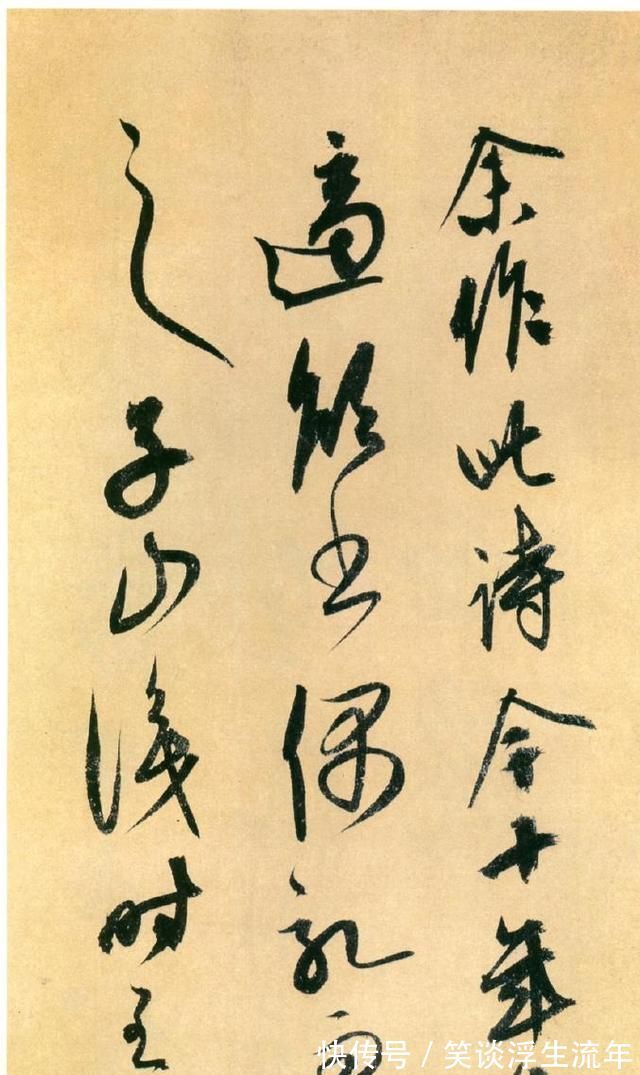 余作此詩今十年
適欲書偶記
之子山識時至
快传号 / 笑谈浮生流年